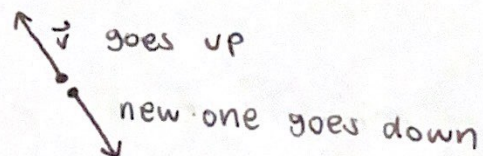 v⃗ goes up
new one goes down